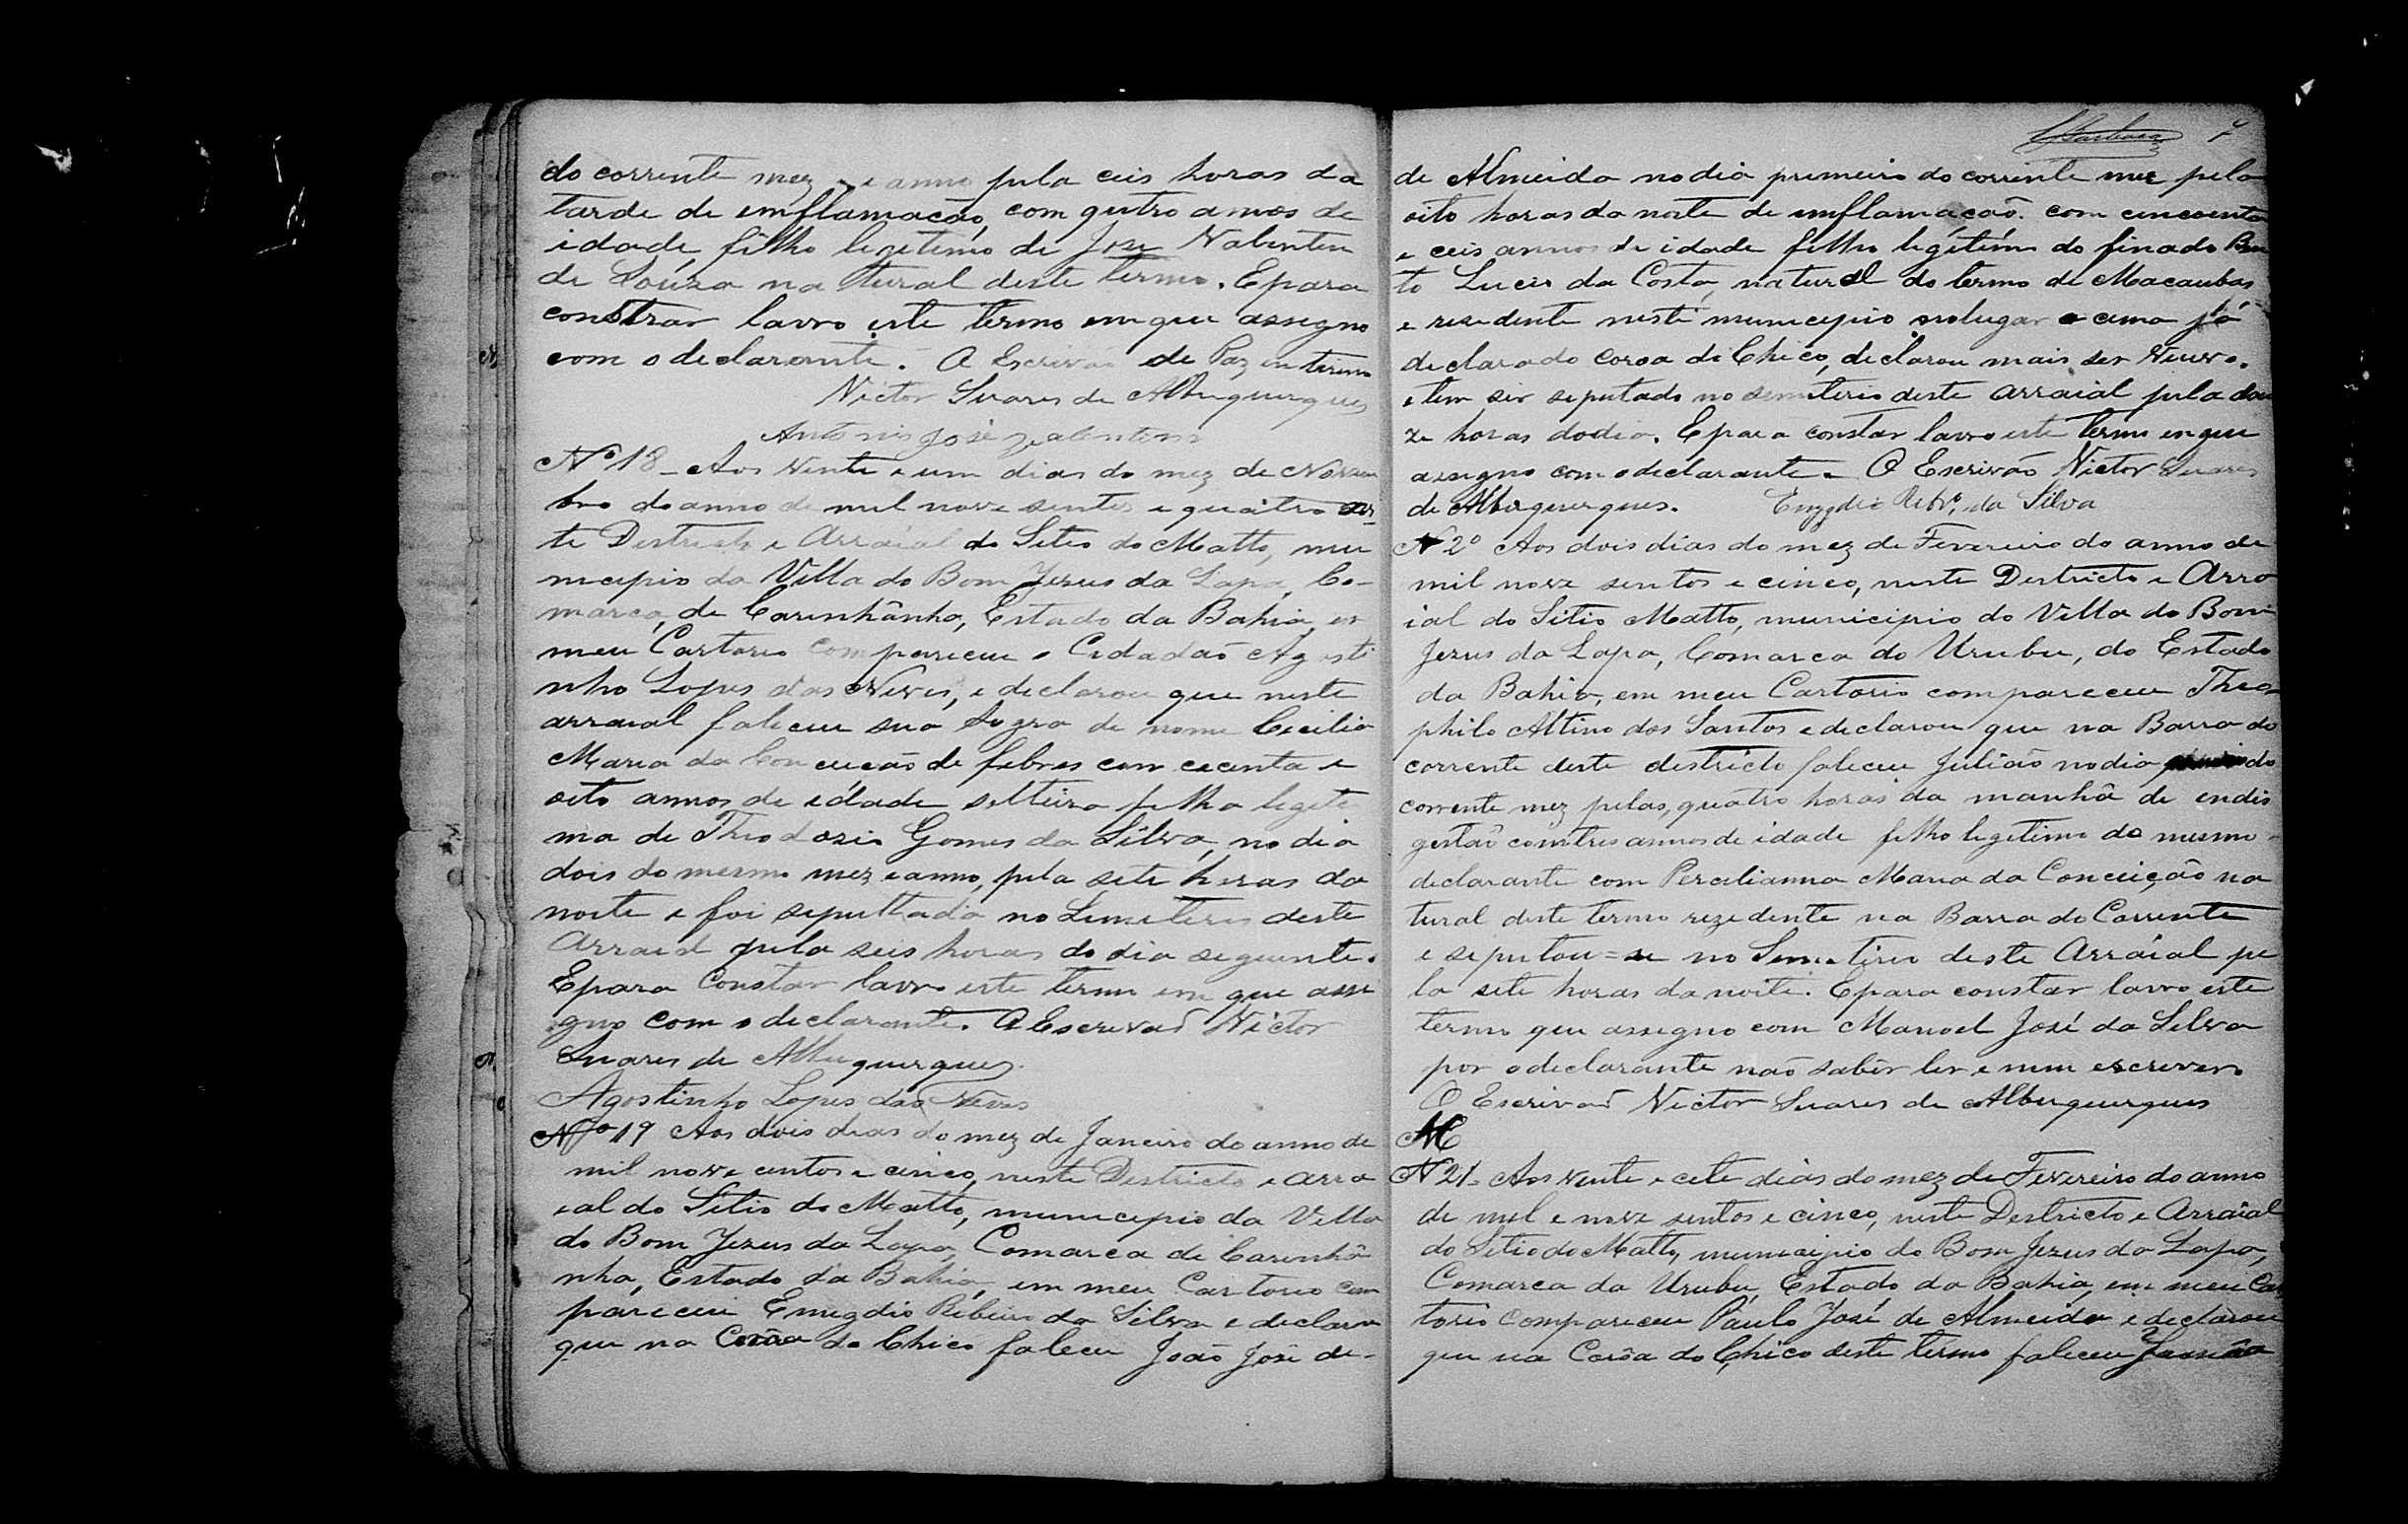 do corrente mez e anno pela ceis horas da
tarde de emflamacão, com qutro annos de
idade, filho legetimo de Jose Valentin
de Souza na tural deste termo. Epara
constrar lavro este termo em que assegno
com o declarante. O Escrivão de Paz enterino
Victor Suares de Albuquerques
Antonio José Valentim
Nº 18 - Aos vente e um dias do mez de Novem
bro do anno de mil nove sentos e quatro nes-
te Destricto e Arraial do Setio do Matto, mu
nicepio da Villa do Bom Jezus da Lapa, Co-
marca, de Carinhânha, Estado da Bahia, em
meu Cartorio compareceu o Cidadaõ Agosti
nho Lopes das Neves, e declarou que neste
arraial faleceu sua Sogra de nome Cecilia
Maria da Conceicão de febres com cecenta e
oito annos de edade solteira filha legete
ma de Theodozio Gomes da Silva, no dia
dois do mesmo mez e anno, pela sete horas da
noite e foi sepultada no Semeterio deste
Arraial pela seis horas do dia seguinte.
Epara Constar lavro este termo em que asse
gno com o declarante. O Escrivaõ Victor
Suares de Albuquerques.
Agostinho Lopes das Neves
Nº 19 Aos dois dias do mez de Janeiro do anno de
mil nove centos e cinco, neste Destricto e arra
ial do Sitio do Matto, municepio da Villa
do Bom Jezus da Lapa, Comarca de Carinhâ
nha, Estado da Bahia, em meu Cartorio com
pareceu Emegdio Ribeiro da Silva e declarou
que na Corôa do Chico faleceu João José de-
7
de Almeida no dia premeiro do corrente mez pela
oito horas da noite de emflamacaõ. com cincoenta
e ceis annos de idade filho legitimo do finado Ben
to Lucio da Costa, natural do termo de Macaubas
e residente neste municepio no lugar a cima já
declarado coroa do Chico, declarou mais ser Veuvo.
e tem sir seputado no semeterio deste arraial pela dou
ze horas do dia. Epara constar lavro este termo em que
assegno com o declarante. O Escrivão Victor Suares
de Albuquerques. Emygdio Ribrº da Silva
N 2º Aos dois dias do mez de Fevereiro do anno de
mil nove sentos e cinco, neste Destricto e Arra
ial do Sitio Matto, municipio da Villa do Bom
Jezus da Lapa, Comarca do Urubu, do Estado
da Bahia, em meu Cartorio compareceu Theo-
philo Altino dos Santos e declarou que na Barra do
corrente deste districto faleceu Julião no dia do
corrente mez pelas, quatro horas da manhâ de endis
gestaõ com tres annos de idade filho legetimo do mesmo
declarante com Percilianna Maria da Conceição na
tural deste termo rezidente na Barra do Corrente
e seputou=se no Semeterio deste Arraial pe
la sete horas da noite. Epara constar lavro este
termo que assegno com Manoel José da Silva
por o declarante naõ sabêr ler e nem escrever.
O Escrivaõ Victor Suares de Albuquerques
M
N 21- Aos vente e cete dias do mez de Fevereiro do anno
de mil e nove sentos e cinco, neste Destricto e Arraial
do Setio do Matto, municipio do Bom Jezus da Lapa,
Comarca do Urubú, Estado da Bahia, em meu Car
torio compareceu Paulo José de Almeida e declarou
que na Corôa do Chico deste termo faleceu